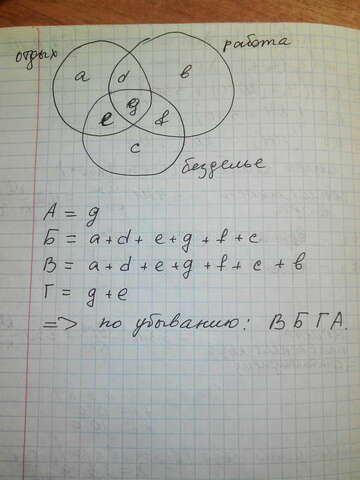 отдых
работа
a d в
e g f
c
безделье
А = g
Б = a + d + e + g + f + c
В = a + d + e + g + f + c + в
Г = g + e
=> по убыванию: В Б Г А.